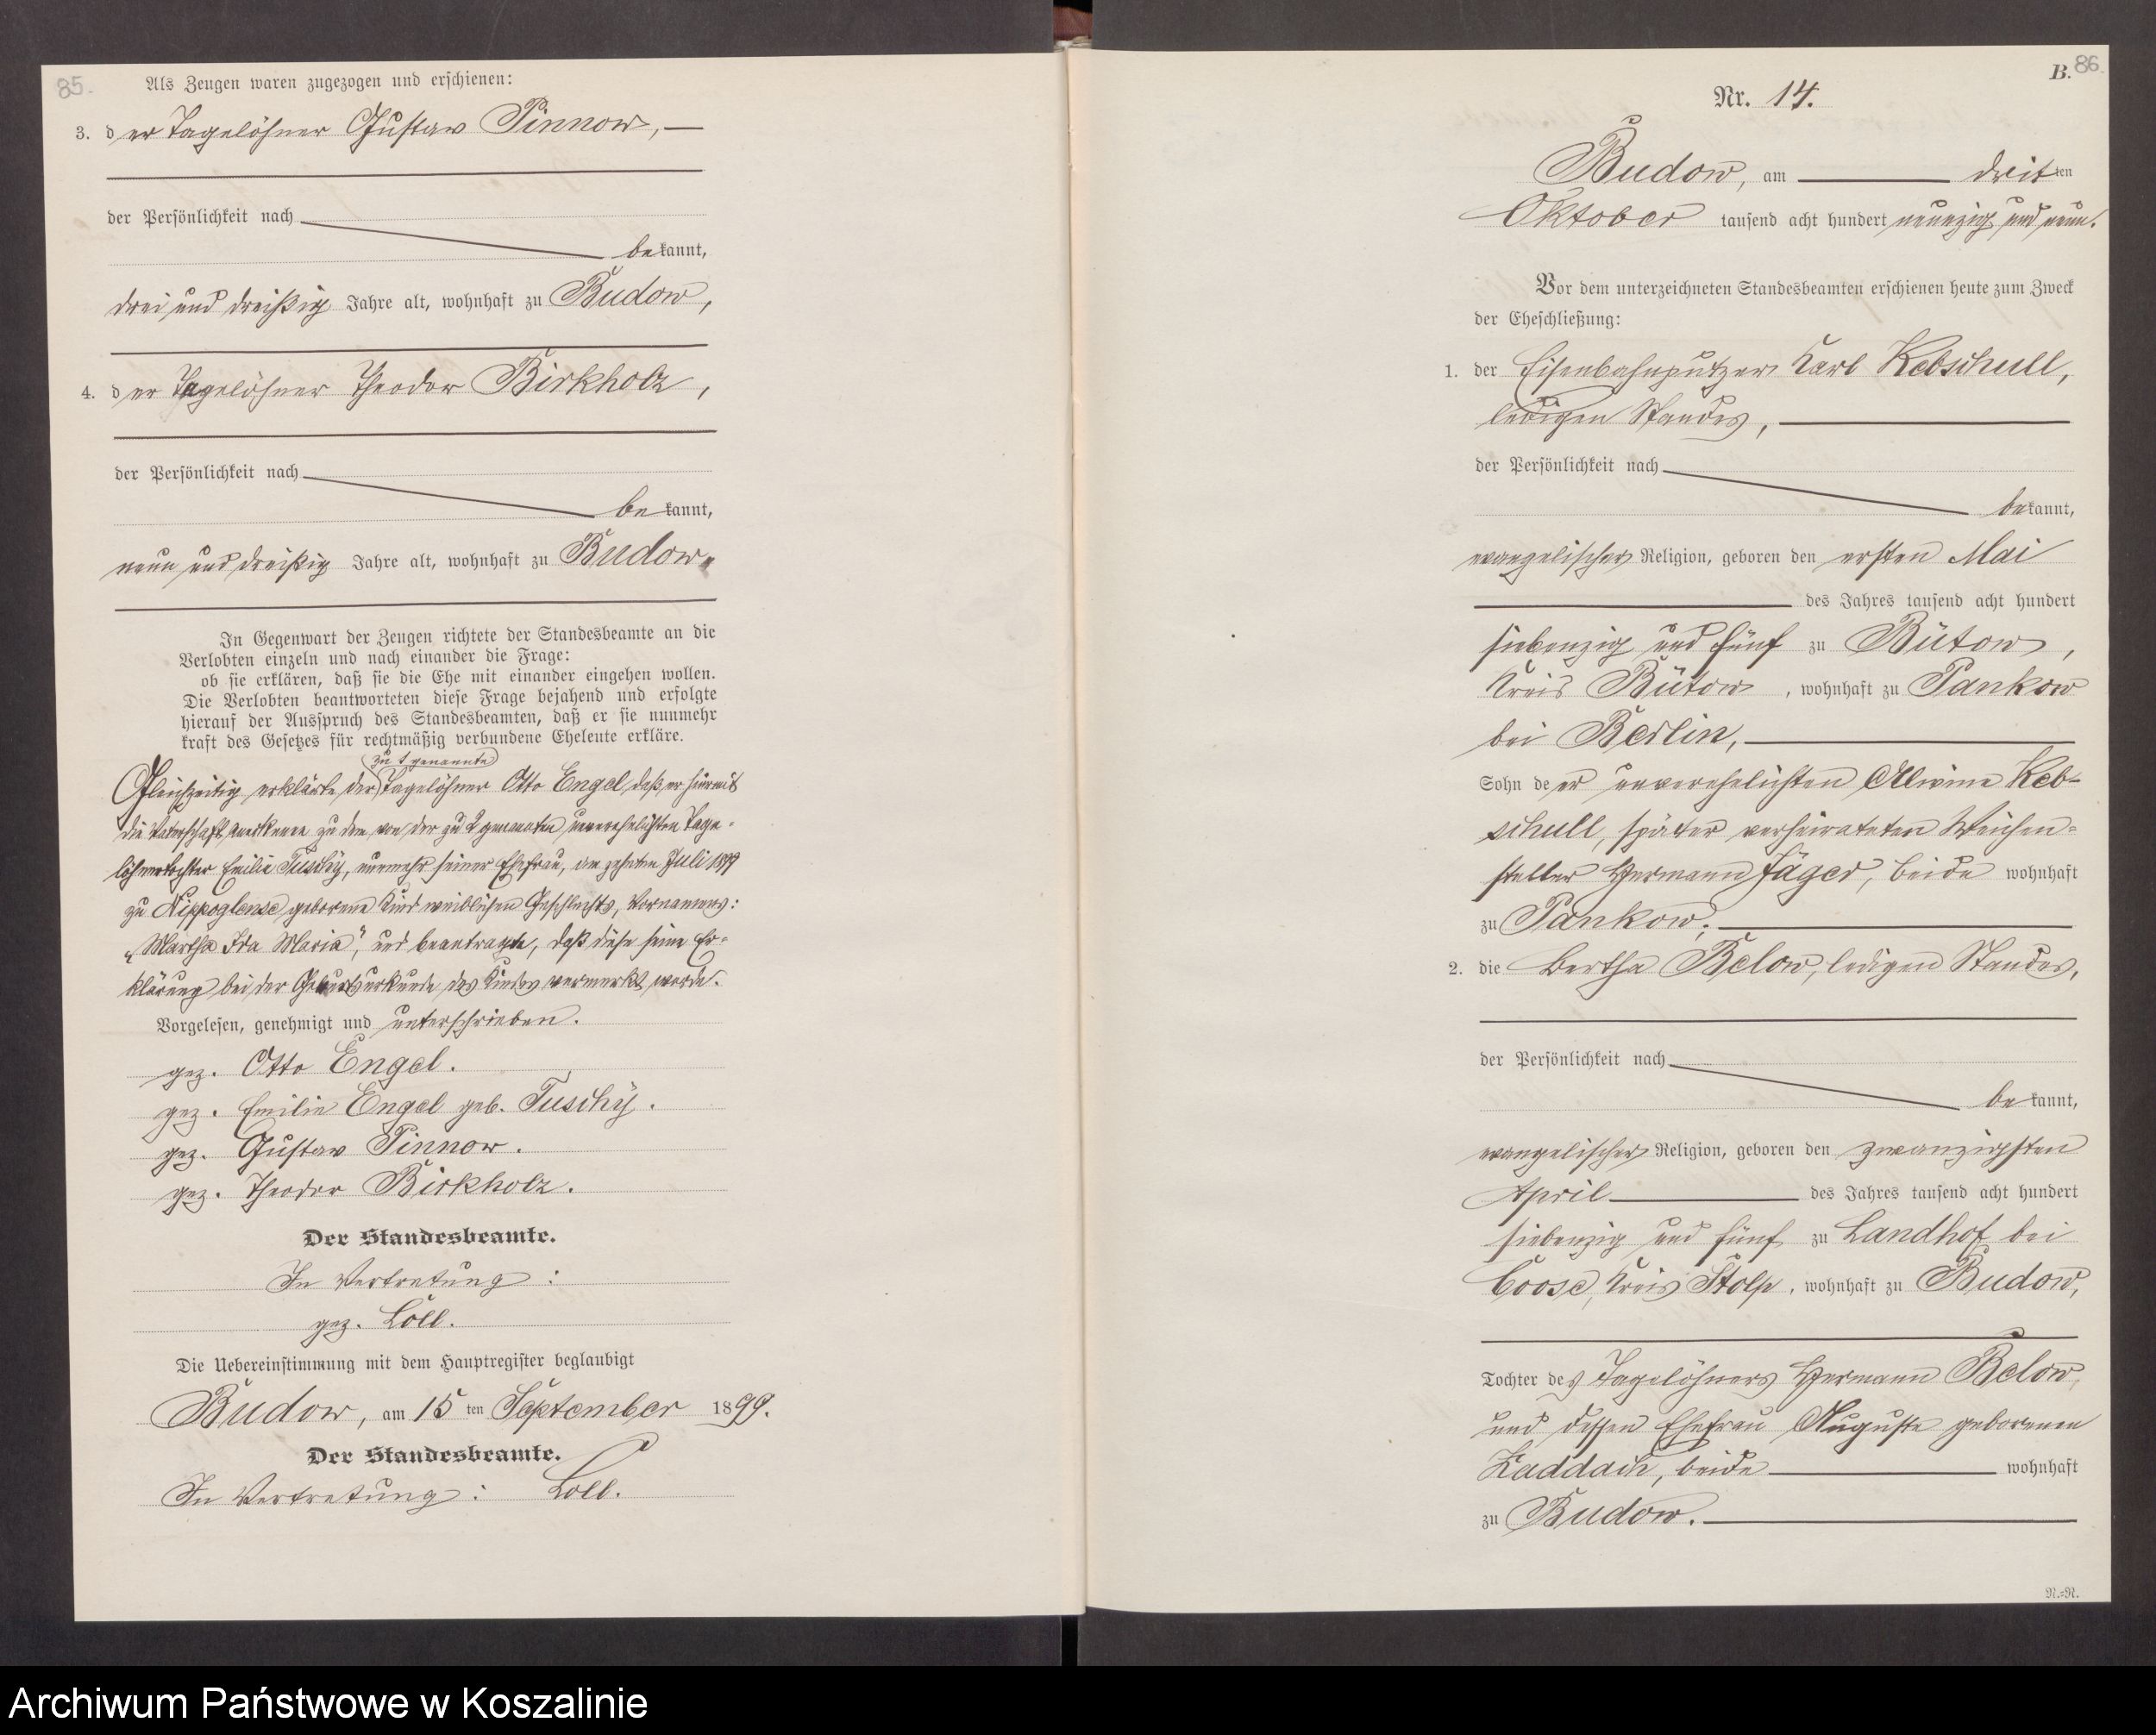 85.
Als Zeugen waren zugezogen und erschienen:
3. der Tagelöhner Gustav Pinnow, —
der Persönlichkeit nach
bekannt,
drei und dreißig Jahre alt, wohnhaft zu Budow,
4. der Tagelöhner Theodor Birkholz,
der Persönlichkeit nach
bekannt,
neun und dreißig Jahre alt, wohnhaft zu Budow.
In Gegenwart der Zeugen richtete der Standesbeamte an die
Verlobten einzeln und nach einander die Frage:
ob sie erklären, daß sie die Ehe mit einander eingehen wollen.
Die Verlobten beantworteten diese Frage bejahend und erfolgte
hierauf der Ausspruch des Standesbeamten, daß er sie nunmehr
kraft des Gesetzes für rechtmäßig verbundene Eheleute erkläre.
zu 1 genannte
Gleichzeitig erklärte der Tagelöhner Otto Engel, daß er hiermit
die Vaterschaft anerkenne zu dem von der zu 2 genannten unverehelichten Tage-
löhnertochter Emilie Tuschy, nunmehr seiner Ehefrau, am zehnten Juli 1899
zu Nippoglense geborene Kind weiblichen Geschlechts, Vornamens:
„Martha Ida Maria", und beantragte, daß diese seine Er-
klärung bei der Geburtsurkunde des Kindes vermerkt werde.
Vorgelesen, genehmigt und unterschrieben.
gez. Otto Engel.
gez. Emilie Engel geb. Tuschy.
gez. Gustav Pinnow.
gez. Theodor Birkholz.
Der Standesbeamte.
In Vertretung:
gez. Loll.
Die Uebereinstimmung mit dem Hauptregister beglaubigt
Budow, am 15ten September 1899.
Der Standesbeamte.
In Vertretung: Loll.
B. 86.
Nr. 14.
Budow, am dritten
Oktober tausend acht hundert neunzig und neun.
Vor dem unterzeichneten Standesbeamten erschienen heute zum Zweck
der Eheschließung:
1. der Eisenbahnputzer Karl Kebschull,
ledigen Standes,
der Persönlichkeit nach
bekannt,
evangelischer Religion, geboren den ersten Mai
des Jahres tausend acht hundert
siebenzig und fünf zu Bütow,
Kreis Bütow, wohnhaft zu Pankow
bei Berlin,
Sohn der unverehelichten Alwine Keb-
schull, später verheirateten Weichen-
steller Hermann Jäger, beide wohnhaft
zu Pankow;
2. die Bertha Below, ledigen Standes,
der Persönlichkeit nach
bekannt,
evangelischer Religion, geboren den zwanzigsten
April des Jahres tausend acht hundert
siebenzig und fünf zu Landhof bei
Coose, Kreis Stolp, wohnhaft zu Budow,
Tochter des Tagelöhners Hermann Below,
und dessen Ehefrau Auguste geborenen
Zaddach, beide wohnhaft
zu Budow.
N.=N.
Archiwum Państwowe w Koszalinie